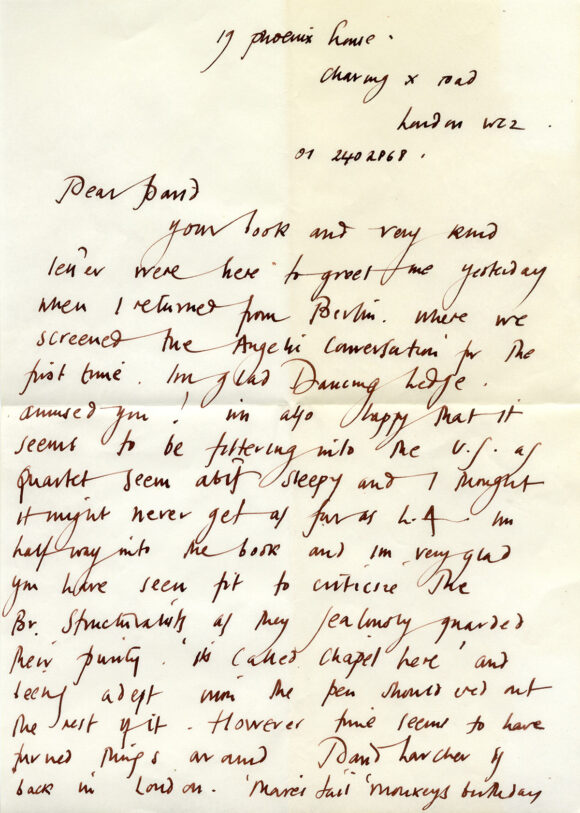 19 phoenix house.
charing x road
London WC2.
01 2402868.
Dear David
your book and very kind
letter were here to greet me yesterday
when I returned from Berlin. where we
screened the Angelic Conversation for the
first time. Im glad Dancing Ledge.
amused you! im also happy that it
seems to be filtering into the U.S. as
Quartet seem abit sleepy and I thought
it might never get as far as L.A. Im
half way into the book and im very glad
you have seen fit to criticise The
Br. Structuralists as they jealously guarded
their purity. 'its called chapel here' and
being adept with the pen shouldered out
the rest of it. However time seems to have
turned things around David Larcher is
back in London. 'Mares tail' 'monkeys birthday